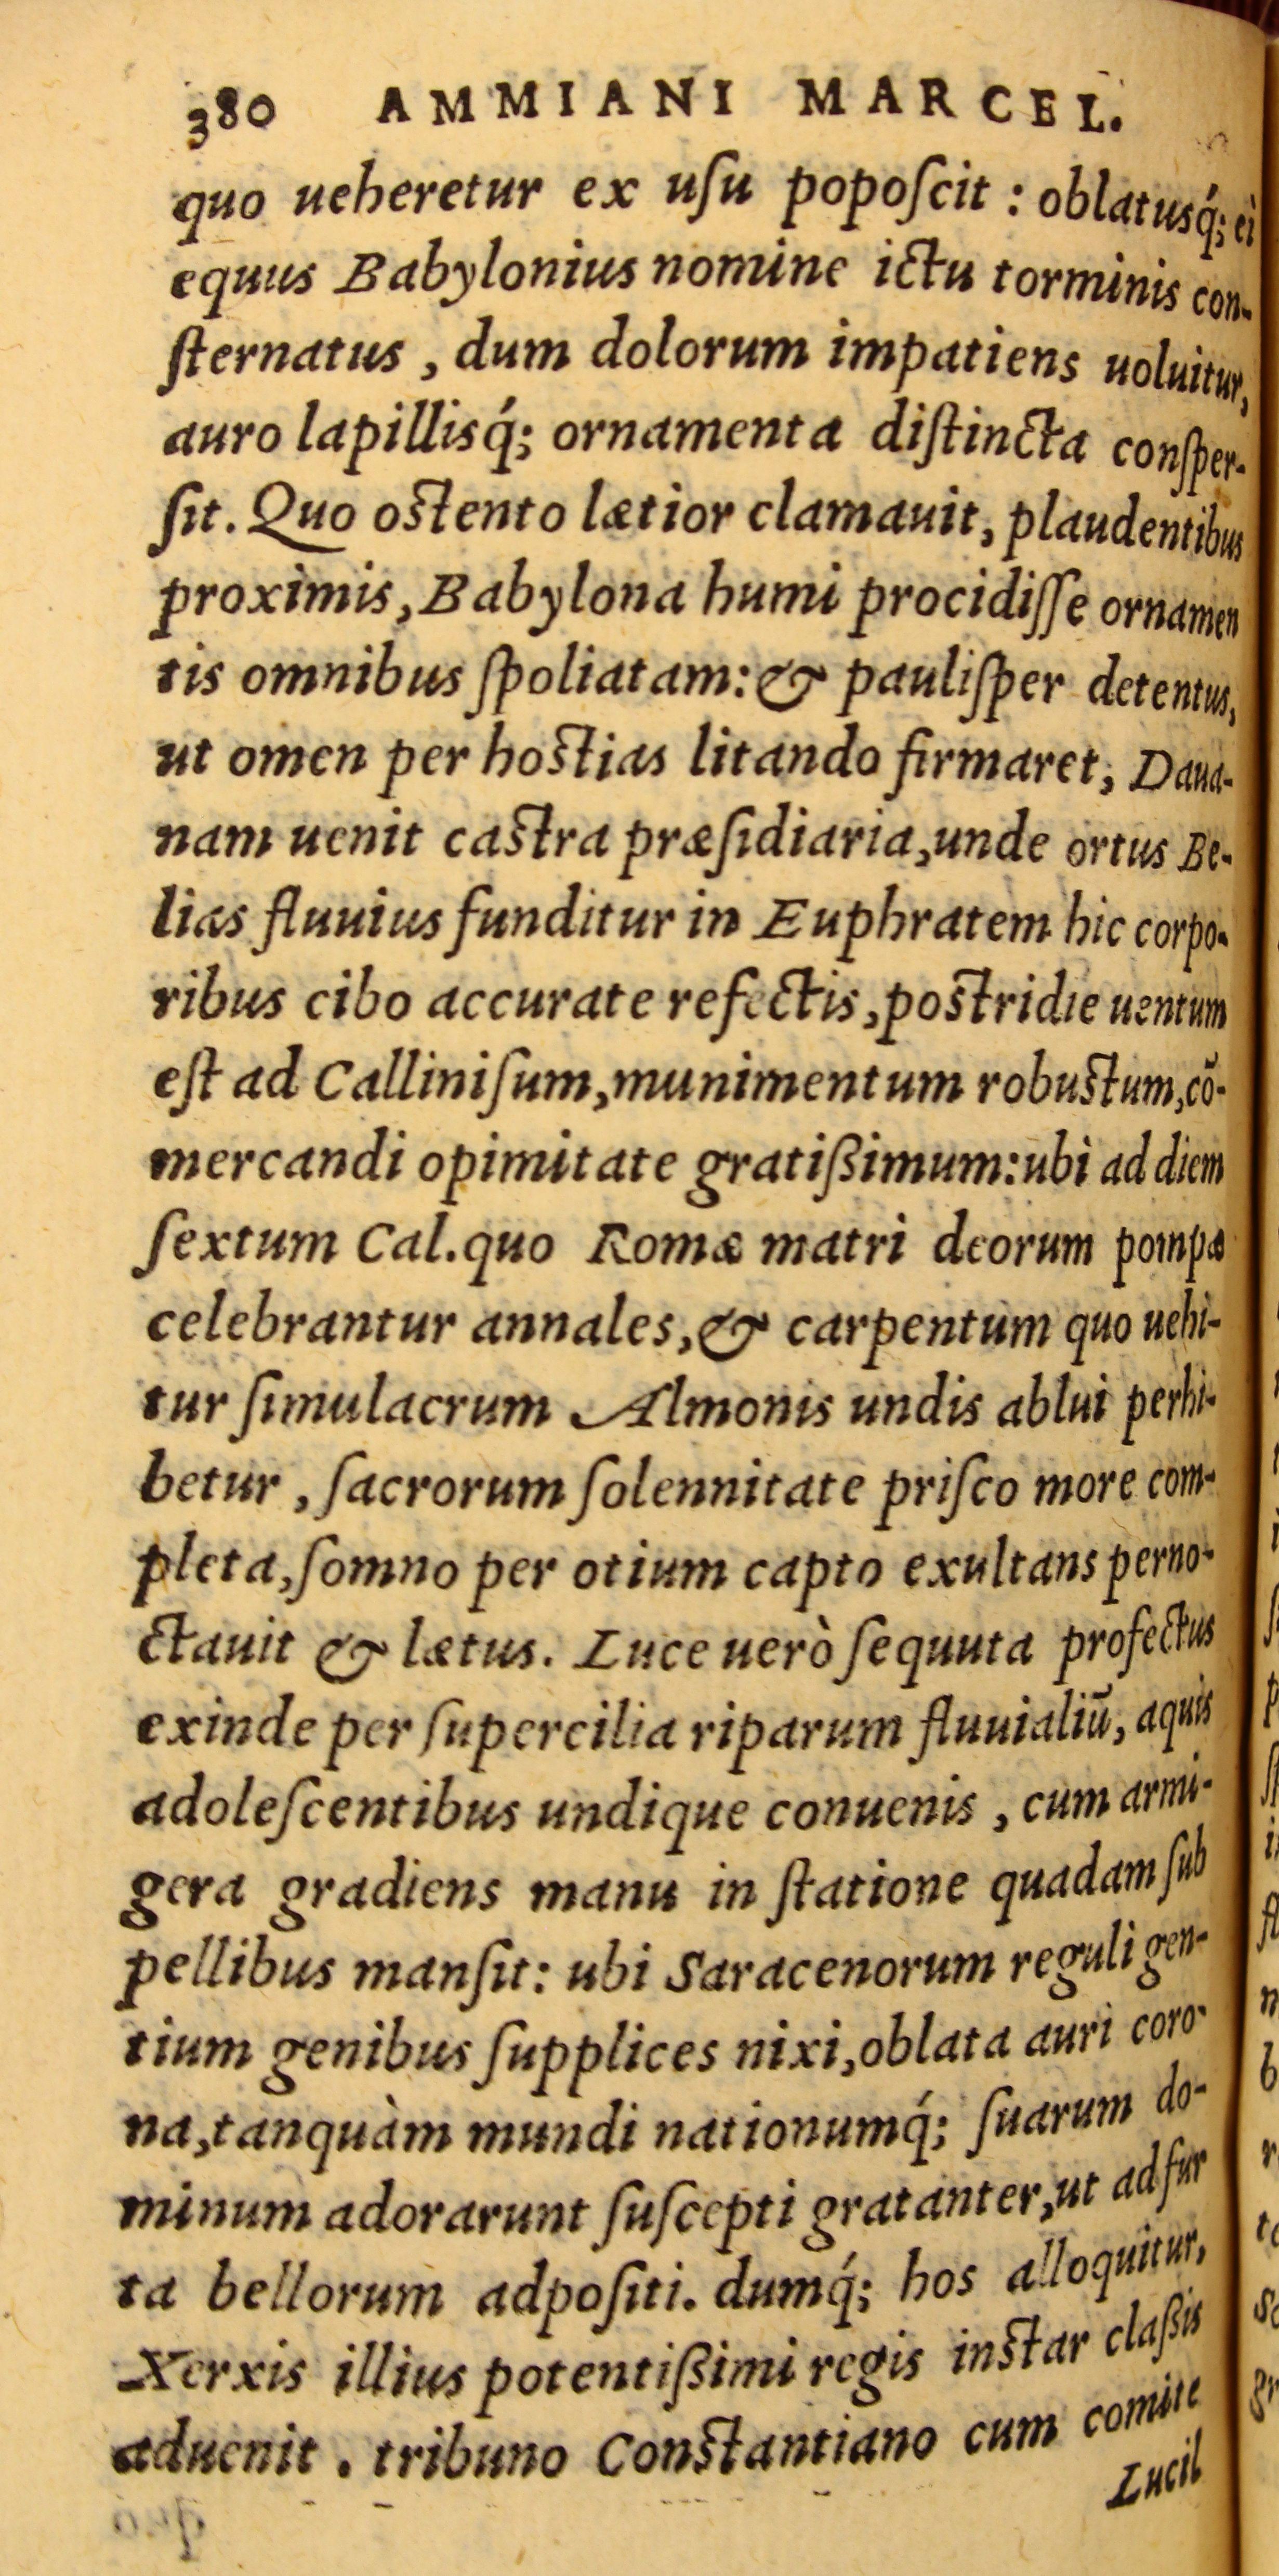 380 AMMIANI MARCEL.
quo ueheretur ex uſu popoſcit : oblatusq́; ei
equus Babylonius nomine ictu torminis con-
ſternatus , dum dolorum impatiens uoluitur,
auro lapillisq́; ornamenta diſtincta conſper-
ſit. Quo oſtento lætior clamauit, plaudentibus
proximis, Babylona humi procidiſſe ornamen
tis omnibus ſpoliatam: & pauliſper detentus,
ut omen per hoſtias litando firmaret, Daua-
nam uenit caſtra præſidiaria, unde ortus Be-
lias fluuius funditur in Euphratem hic corpo-
ribus cibo accurate refectis, poſtridie uentum
eſt ad Calliniſum, munimentum robuſtum, cō-
mercandi opimitate gratißimum: ubi ad diem
ſextum Cal. quo Romæ matri deorum pompæ
celebrantur annales, & carpentum quo uehi-
tur ſimulacrum Almonis undis ablui perhi-
betur , ſacrorum ſolennitate priſco more com-
pleta, ſomno per otium capto exultans perno-
ctauit & lætus. Luce uerò ſequuta profectus
exinde per ſupercilia riparum fluuialiū, aquis
adoleſcentibus undique conuenis , cum armi-
gera gradiens manu in ſtatione quadam ſub
pellibus manſit: ubi Saracenorum reguli gen-
tium genibus ſupplices nixi, oblata auri coro-
na, tanquàm mundi nationumq́; ſuarum do-
minum adorarunt ſuſcepti gratanter, ut ad fur
ta bellorum adpoſiti. dumq́; hos alloquitur,
Xerxis illius potentißimi regis inſtar claßis
aduenit . tribuno Conſtantiano cum comite
Lucil